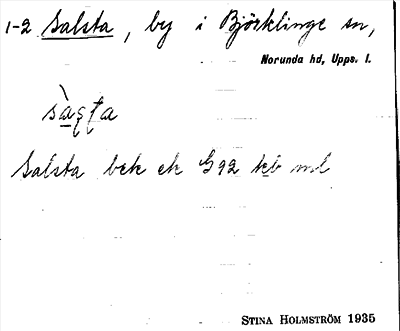 1-2 Salsta, by i Björklinge sn,
Norunda hd, Upps. l.
sàṣṭa
Salsta bek ek G92 kb md
STINA HOLMSTRÖM 1935